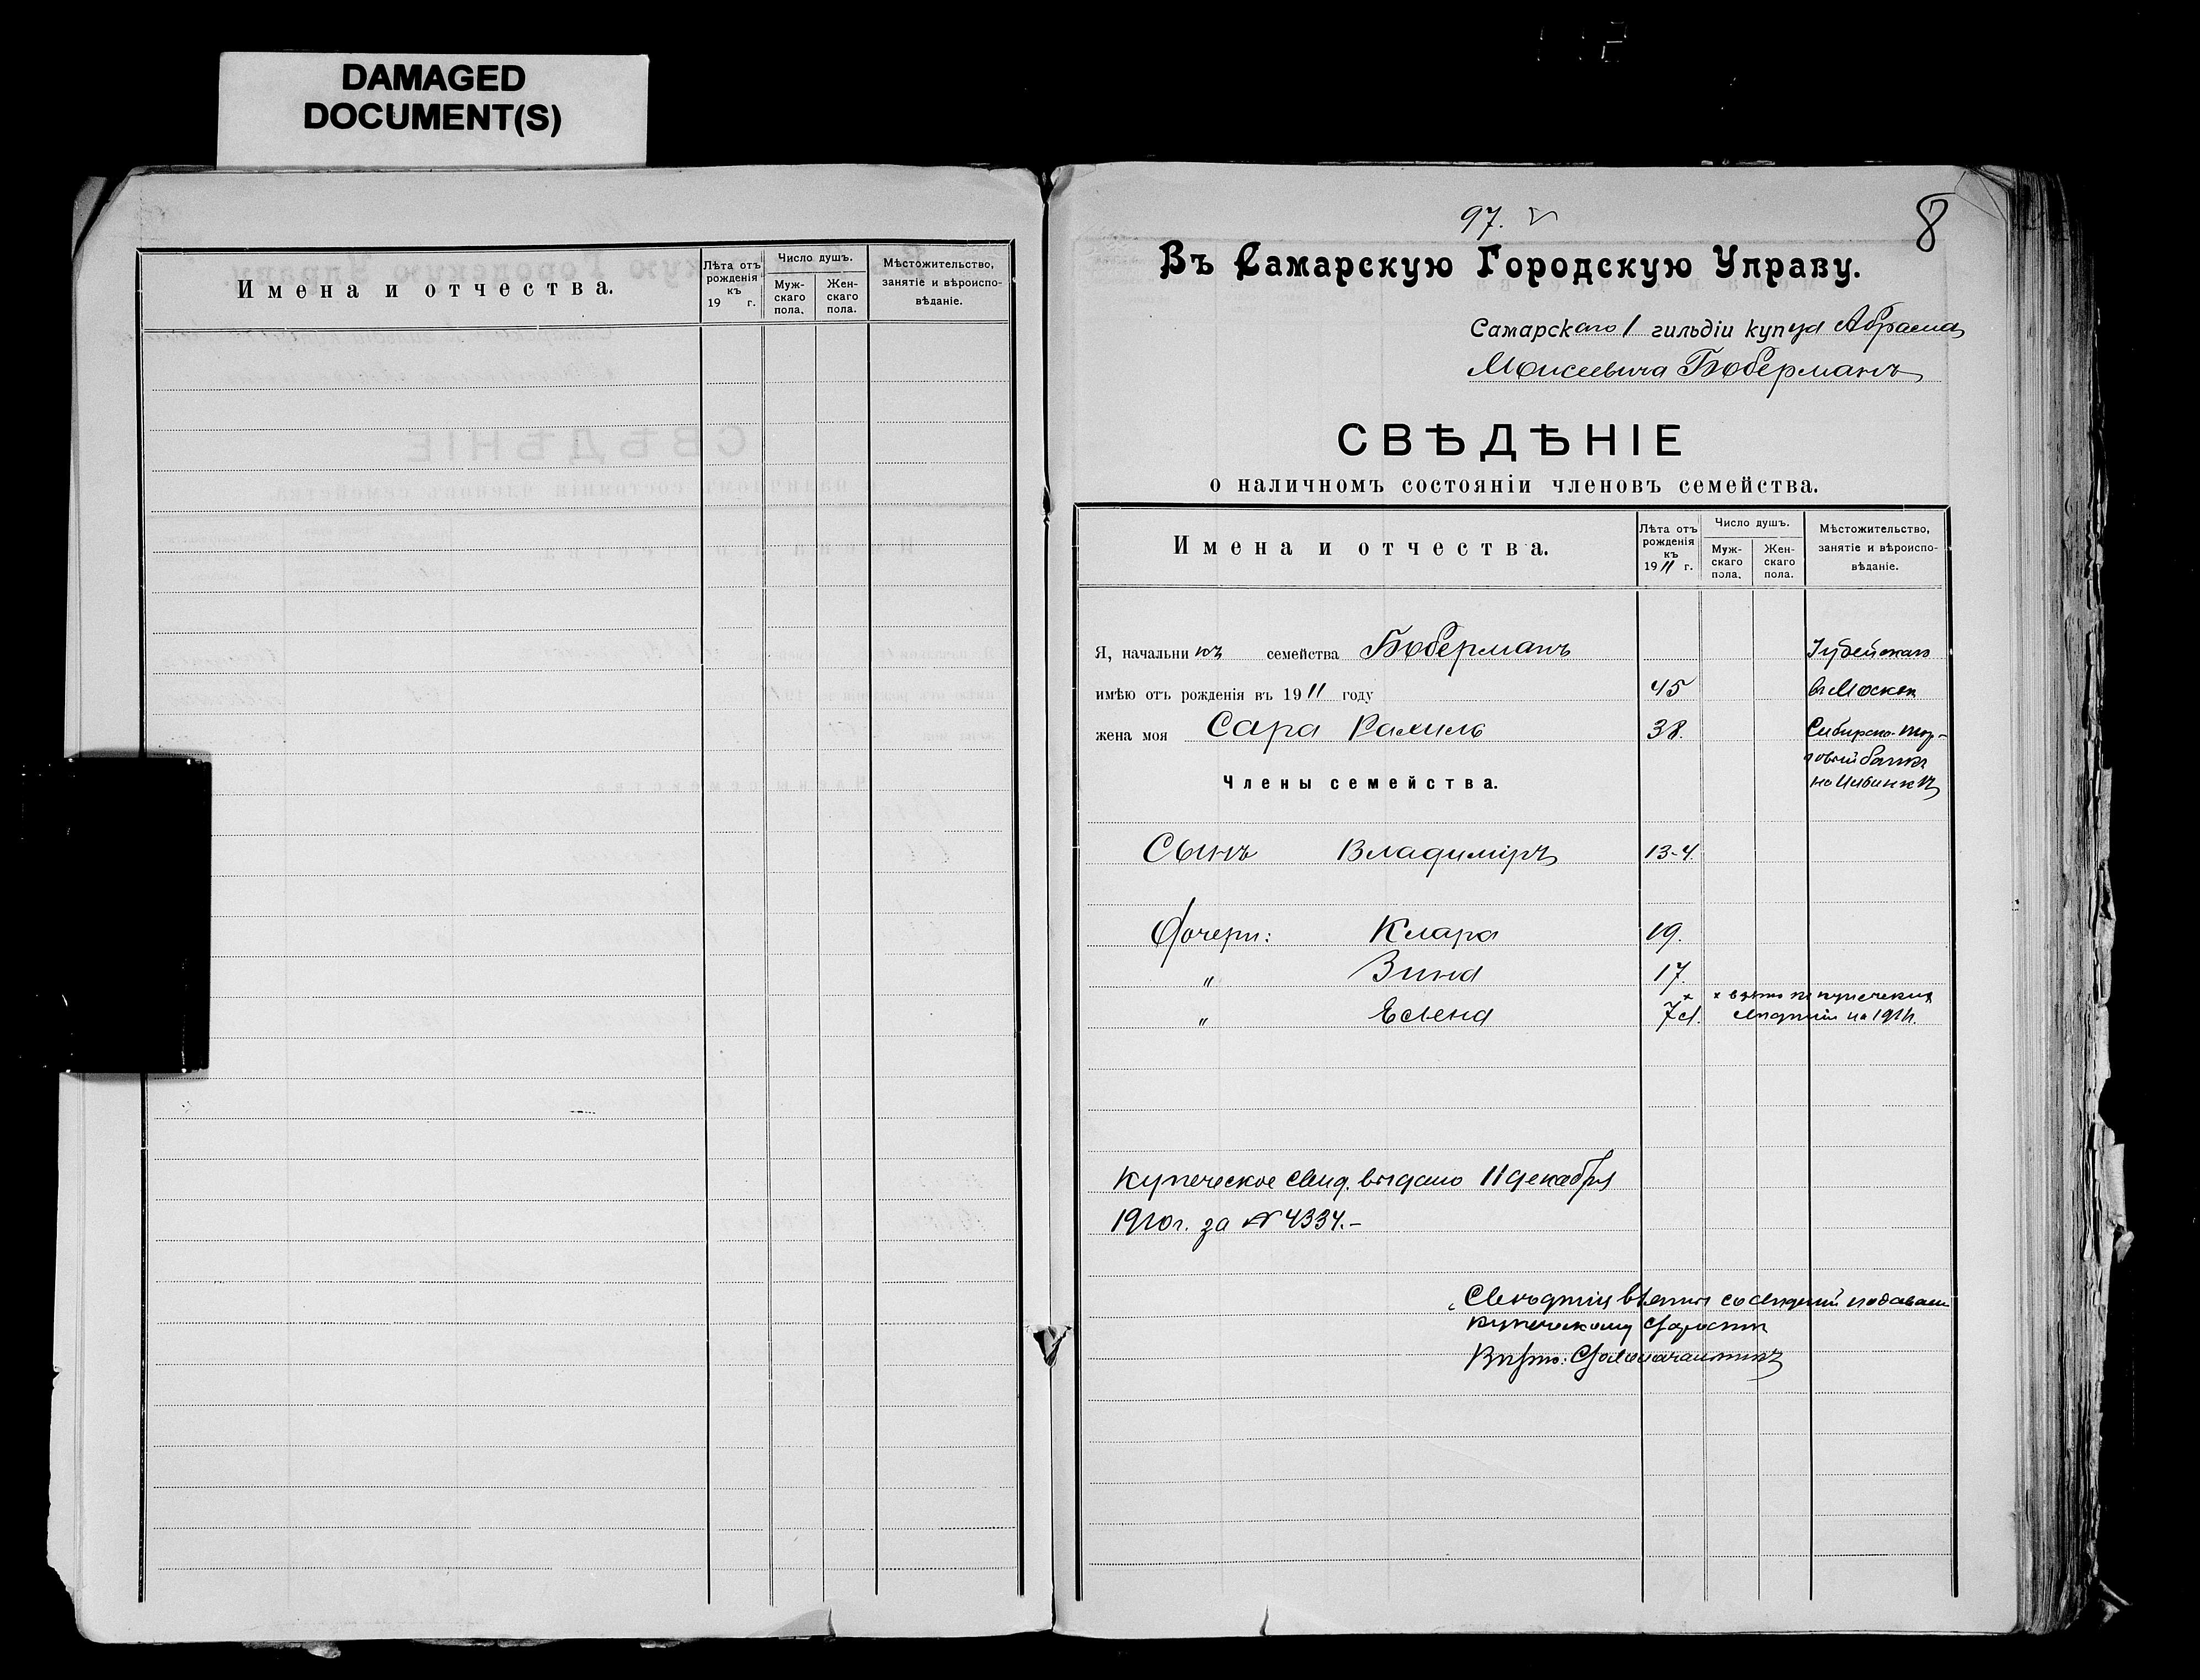 DAMAGED
DOCUMENT(S)
Имена и отчества.
Лѣта отъ
рожденія
къ
19 г.
Число душъ.
Муж-
скаго
пола.
Жен-
скаго
пола.
Мѣстожительство,
занятіе и вѣроиспо-
вѣданіе.
97.
8
Въ Самарскую Городскую Управу.
Самарскаго 1 гильдіи купца Абрама
Моисеевича Боберманъ
СВѢДѢНІЕ
о наличномъ состояніи членовъ семейства.
Имена и отчества.
Лѣта отъ
рожденія
къ
1911 г.
Число душъ.
Муж-
скаго
пола.
Жен-
скаго
пола.
Мѣстожительство,
занятіе и вѣроиспо-
вѣданіе.
Я, начальникъ семейства Боберманъ Іудейскаго
имѣю отъ рожденія въ 1911 году 45 въ Москвѣ
жена моя Сара Рахиль 38. Сибирско-Тор-
говый банкъ
на Ильинкѣ
Члены семейства.
Сынъ Владиміръ 13-4.
Дочери: Клара 19.
" Зина 17.
" Елена 7
на 1911г.
Купеческое свид. выдано 11 декабря
1910г. за № 4334.-
купеческому старостѣ